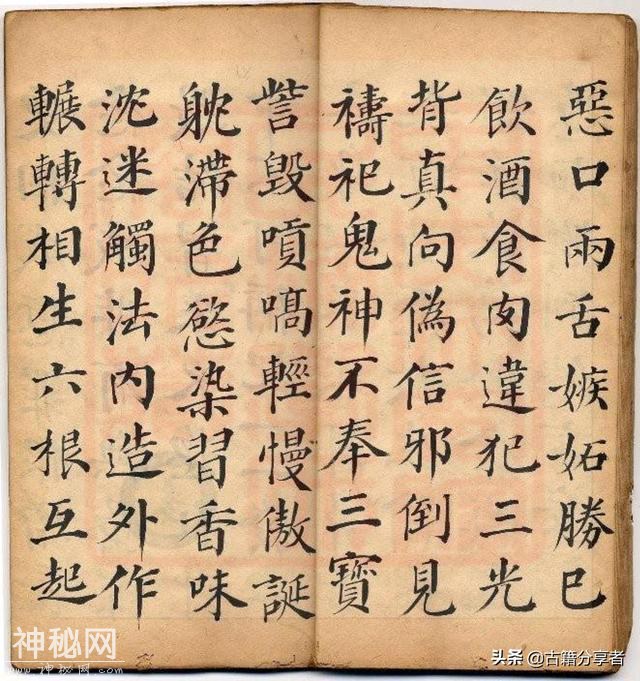 惡口兩舌嫉妬勝巳
飲酒食肉違犯三光
背真向偽信邪倒見
禱祀鬼神不奉三寶
訾毀噴嗃輕慢傲誕
躭滯色慾染習香味
沈迷觸法內造外作
輾轉相生六根互起
神秘网
www.神秘网.com
头条 @古籍分享者